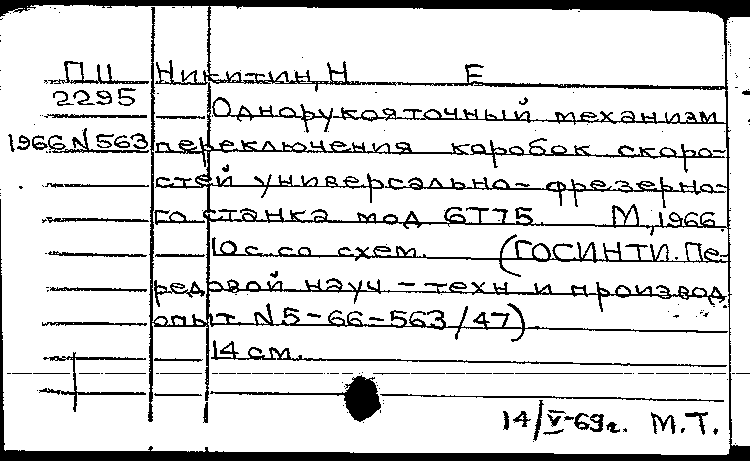 П II Никитин, Н Е
2295
Однорукояточный механизм
1966 N 563 переключения коробок скоро-
стей универсально-фрезерно-
го станка мод 6Т75. М., 1966.
10 с. со схем. (ГОСИНТИ. Пе-
редовой науч-техн и производ
опыт N 5-66-563/47)
14 см.
14/V-69г. М.Т.